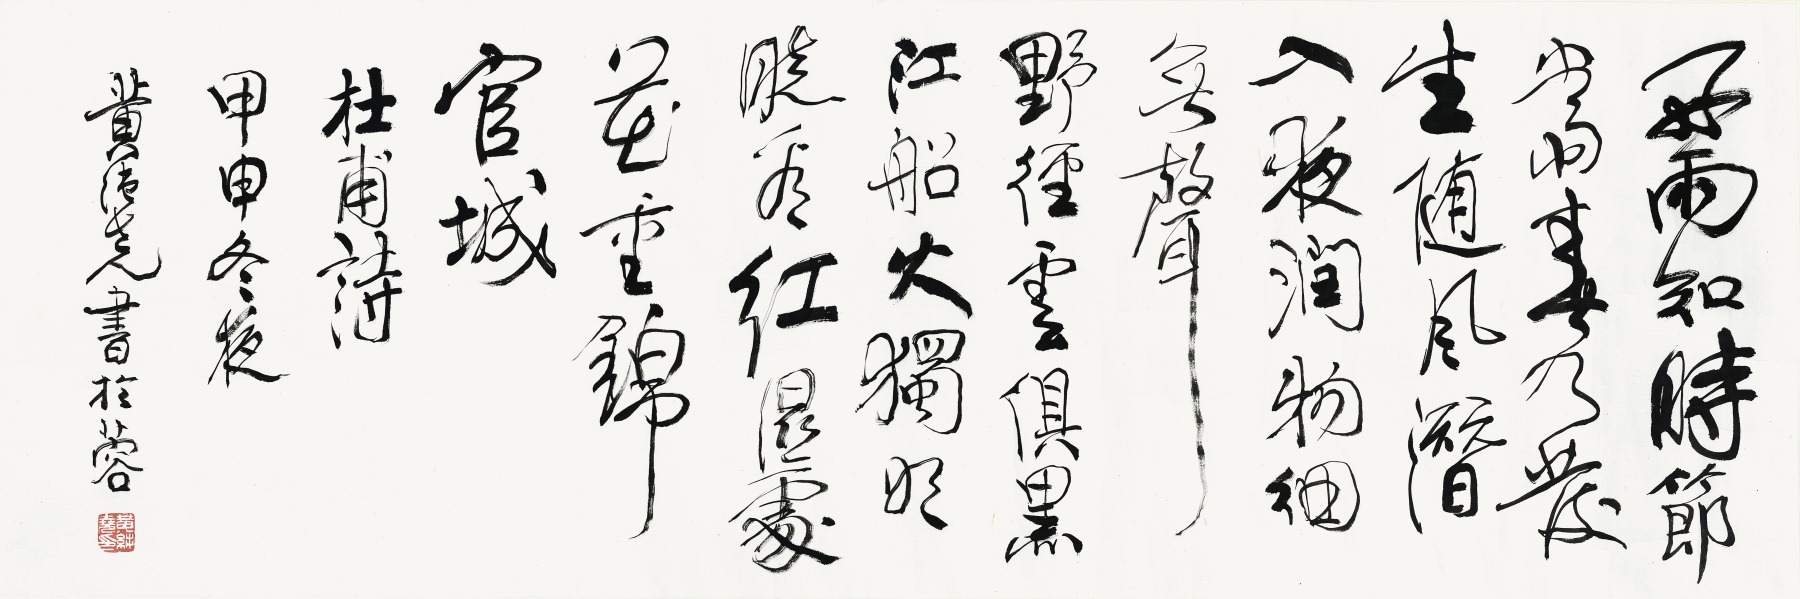 好雨知時節
當春乃發
生随風潛
入夜潤物細
無聲
野徑雲俱黑
江船火獨明
曉看紅濕處
花重錦
官城
杜甫詩
甲申冬夜
書於蓉